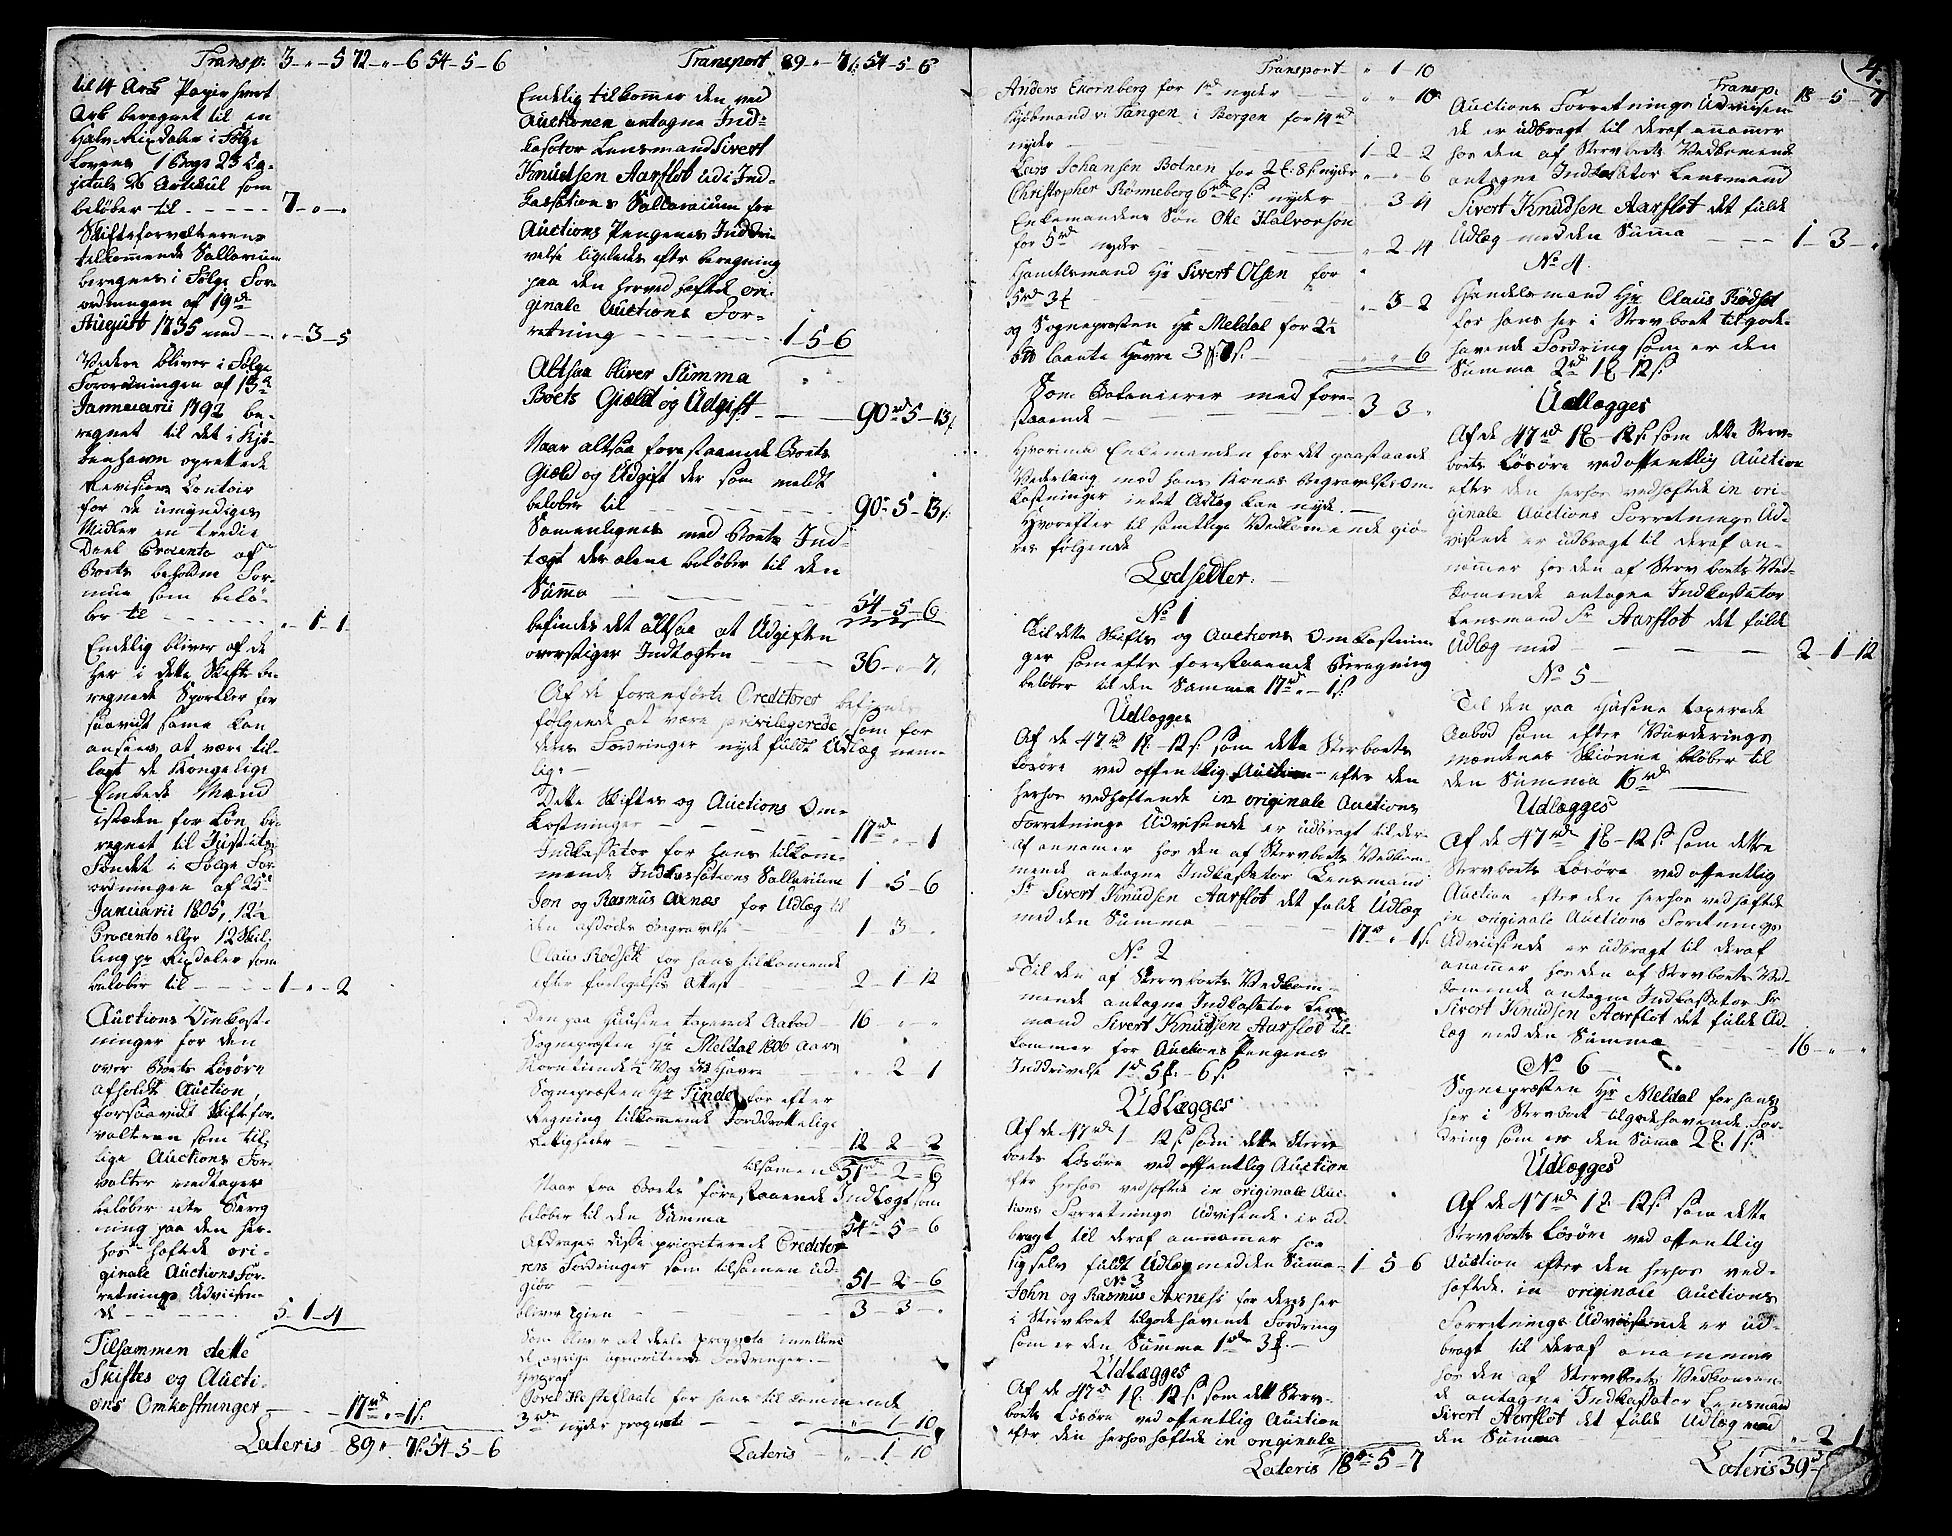 Transp: 3 - " - 5 72 - " - 6 54 - 5 - 6
til 14 Ark Papir hvert
Ark beregnet til en
Halv Rixdaler i Følge
Lovens 1 Bogs 23 Ca-
pitels Artikul som
beløber til - - - - - 7 - " - "
Skifteforvalterens
tilkommende Sallarium
beregnes i Følge For-
ordningen af 19de
August 1735 med - - " - 3 - 5
Videre bliver i Følge
Forordningen af 13de
Januarii 1792 be-
regnet til det i Kjø-
benhavn oprettede
Revisions Contoir
for de umyndiges
Midler en tredie
Deel Procento af
Boets beholdne For-
mue som belø-
ber til - - - - - " - 1 - 1
Endelig bliver af de
her i dette Skifte be-
regnede Sportler for
saavidt same kan
ansees at være til-
lagt de Kongelige
Embeds Mænd
istæden for Løn, be-
regnet til Justits-
Fondet i Følge For-
ordningen af 25de
Januarii 1805, 12½
Procento eller 12 Skil-
ling pr Rixdaler som
beløber til - - - - 1 - " - 2
Auctions Omkost-
ninger for den
over Boets Løsøre
afholdt Auction,
forsaavidt Skiftefor-
valteren som til-
lige Auctions For-
valter vedtager
beløber efter Bereg-
ning paa den her-
hos hæftede ori-
ginale Auctions For-
retnings Udviisen-
de - - - - - - 5 - 1 - 4
Tilsammen dette
Skiftes og Aucti-
ons Omkostninger - - 17rd " - 1s.
Lateris - 89 " 7s. 54 - 5 - 6
Transport 89 - " 7s. 54 - 5 - 6
Endelig tilkommer den ved
Auctionen antagne Ind-
kasator Lensmand Sivert
Knudsen Aarflot udi Ind-
kasations Sallarium for
Auctions Pengenes Inddri-
velse ligeledes efter beregning
paa den herved hæftede ori-
ginale Auctions For-
retning - - - - - 1 5 - 6
Altsaa bliver Summa
Boets Giæld og Udgift - - 90rd 5 - 13s.
Naar altsaa forestaaende Boets
Giæld og Udgift der som meldt
beløber til - - - - 90 - 5 - 13s.
Samenlignes med Boets Ind-
tægt der alene beløber til den
Summa - - - - 54 - 5 - 6
befindes det altsaa at Udgiften
overstiger Indtægten - - - 36 - " - 7,
Af de foranførte Creditorer befindes
følgende at være privilegerede, som for
deres Fordringer nyde fuldt Udlæg nem-
lig: -
Dette Skiftes og Auctions Om-
kostninger - - - - 17rd " - 1
Indkassator for hans tilkom-
mende Indkassations Sallarium 1 - 5 - 6
Jon og Rasmus Axnæs for Udlæg til
den afdødes Begravelse - 1 - 3 - "
Claus Rødsett for hans tilkomende
efter forligelses Attest - - 2 - 1 - 12
Den paa Huusene taxerede Aabod - 16 - " - "
Sognepræsten Hr Meldal 1806 Aars
Korntiende ½ Vog 2 Havre - - " - 2 1
Sognepræsten Hr Tinde for efter
Regning tilkommende Jorddrottelige
Rettigheder - - - 12 - 2 - 2
tilsamen 51rd 2 - 6
Naar fra Boets forestaaende Indtægt som
beløber til den Summa - - 54rd 5 - 6
Afdrages disse prioriterede Creditor-
rers Fordringer som tilsamen ud-
giør - - - 51 - 2 - 6
bliver igien - - - 3 3 - "
Som bliver at deele prograta imellem
de øvrige uprioriterede Fordringer. -
hvoraf
Povel for hans til kommende
3rd nyder prograte - - - " 1 - 10,
Lateris - " - 1 - 10
4.
Transport " 1 - 10
Anders Ekornberg for 1rd nyder - " " 10
Kjøbmand v. Tangen i Bergen for 14rd
nyder - - - 1 - 2 - 2
Lars Johansen Botnen for 2 8s nyder " - " 6
Christopher Rønneberg 6rd 8s. nyder - " 3 4
Enkemandens Søn Ole Halvorsøn
for 5rd nyder - - " 2 - 4
Handelsmand Hr Sivert Olsen for
5rd 3 - - - " - 3 - 2
og Sognepræsten Hr Meldal for 2½
laante Havre 3 7s. - " " 6
Som Balancierer med fore-
staaende - - - 3 3 "
Hvorimod Enkemanden for det paastaaende
Vederlaug med hans Kones begravelses Om-
kostninger intet Udlæg kan nyde. -
Hvorefter til samtlige Vedkomende giø-
res følgende
Lodsedler. -
No 1
Til dette Skiftes og Auctions Omkostnin-
ger som efter forestaaende Beregning
beløber til den Summa 17rd " - 1s.
Udlægges
Af de 47rd 1 - 12s. som dette Sterfboets
Løsøre ved offentlig Auction efter den
herhos vedhæftende in originale Auctions
Forretnings Udvisende er udbragt til der-
af annamer hos den af Sterfboets Vedkom-
mende antagne Indkassator Lensmand
Sr Sivert Knudsen Aarflot det fulde Udlæg
med den Summa - - - 17rd " 1s.
No 2
Til den af Sterfboets Vedkom-
mende antagne Indkassator Lens-
mand Sivert Knudsen Aarflot til-
kommer for Auctions Pengenes
Inddrivelse 1rd 5 - 6s.
Udlægges
Af de 47rd 1 - 12s. som dette Sterf-
boets Løsøre ved offentlig Auction
efter herhos vedhæftede in originale Auc-
tions Forretnings Udvisende er ud-
bragt til deraf annamer hos
sig selv fuldt Udlæg med den Suma - 1 5 6
No 3
John og Rasmus Axnæs for deres her
i Sterfboet tilgodehavende Fordring
som er den Summa 1rd 3. -
Udlægges
Af de 47rd 1 12s. som dette Sterf-
boets Løsøre ved offentlig Auction
efter den herhos hæftede in originale
Lateris 18rd 5 - 7
Transp: 18 - 5 - 7
Auctions Forretnings Udviisen-
de er udbragt til deraf annamer
hos den af Sterfboets Vedkomende
antagne Indkasator Lensmand
Sivert Knudsen Aarflot det fulde
Udlæg med den Summa - - 1 - 3 - "
No 4.
Handelsmand Hr Claus Rødset
for hans her i Sterfboet tilgode-
havende Fordring som er den
Summa 2rd 1 12s.
Udlægges
Af de 47rd 1 - 12s. som dette Sterf-
boets Løsøre ved offentlig Auction
efter den herhos vedhæftede in ori-
ginale Auctions Forretnings Ud-
visende er udbragt til deraf an-
nammer hos den af Sterfboets Ved-
komende antagne Indkassator
Lensmand Sr Aarflot det fulde
Udlæg med - - - 2 - 1 - 12
No 5 -
Til den paa Husene taxerede
Aabod som efter Vurderings
mændenes Skiønne beløber til
den Summa 16rd -
Udlægges
Af de 47rd 1 - 12s. som dette
Sterfboets Løsøre ved offentlig
Auction efter den herhos vedhæftede
in originale Auctions Forretnings
Udviisende er udbragt til deraf
anammer hos den af Sterfboets Ved-
komende antagne Indkassator Sr
Sivert Knudsen Aarflot det fulde Ud-
læg med den Summa - - 16 - " - "
No 6 -
Sognepræsten Hr Meldal for hans
her i Sterfboet tilgodehavende For-
dring som er den Suma 2 1s.
Udlægges
Af de 47rd 1 - 12s. som dette
Sterfboets Løsøre ved offentlig
Auction efter den herhos ved-
hæftede in originale Auctions
Forretnings Udviisende er ud-
bragt til deraf anammer
hos den af Sterfboets Vedkomen-
de antagne Indkassator Lensmand
Sivert Aarflot det fulde Udlæg med
den Summa - - " 2 1
Lateris 39rd